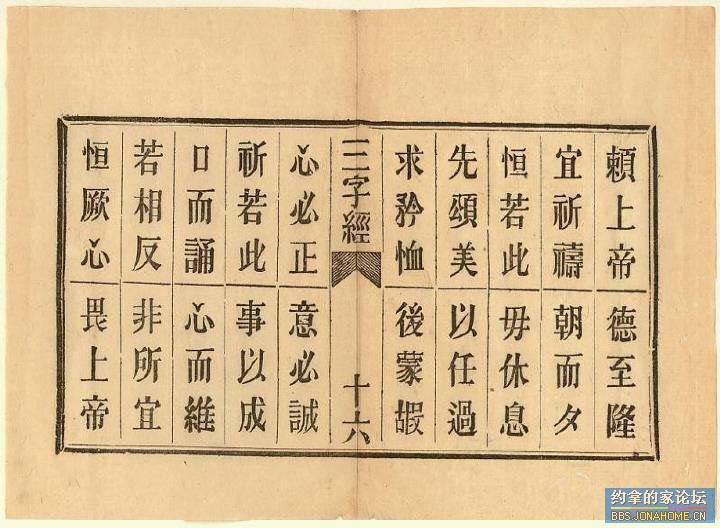 頼上帝 德至隆
宜祈禱 朝而夕
恒若此 毋休息
先頌美 以任過
求矜恤 後蒙嘏
三字經 十六
心必正 意必誠
祈若此 事以成
口而誦 心而維
若相反 非所宜
恒厥心 畏上帝
约拿的家论坛
BBS.JONAHOME.CN